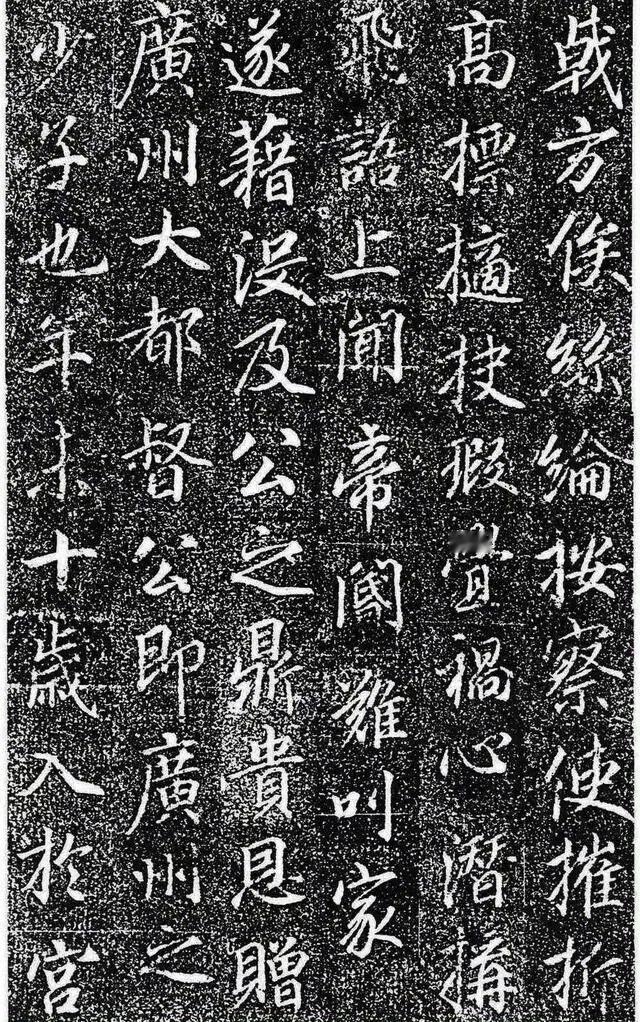 戟方俟絲綸按察使摧折
高摽擿抉瑕舋禍心潛搆
飛語上聞帝閽難叫家
遂藉沒及公之鼎貴恩贈
廣州大都督公即廣州之
少子也年未十歲入於宮